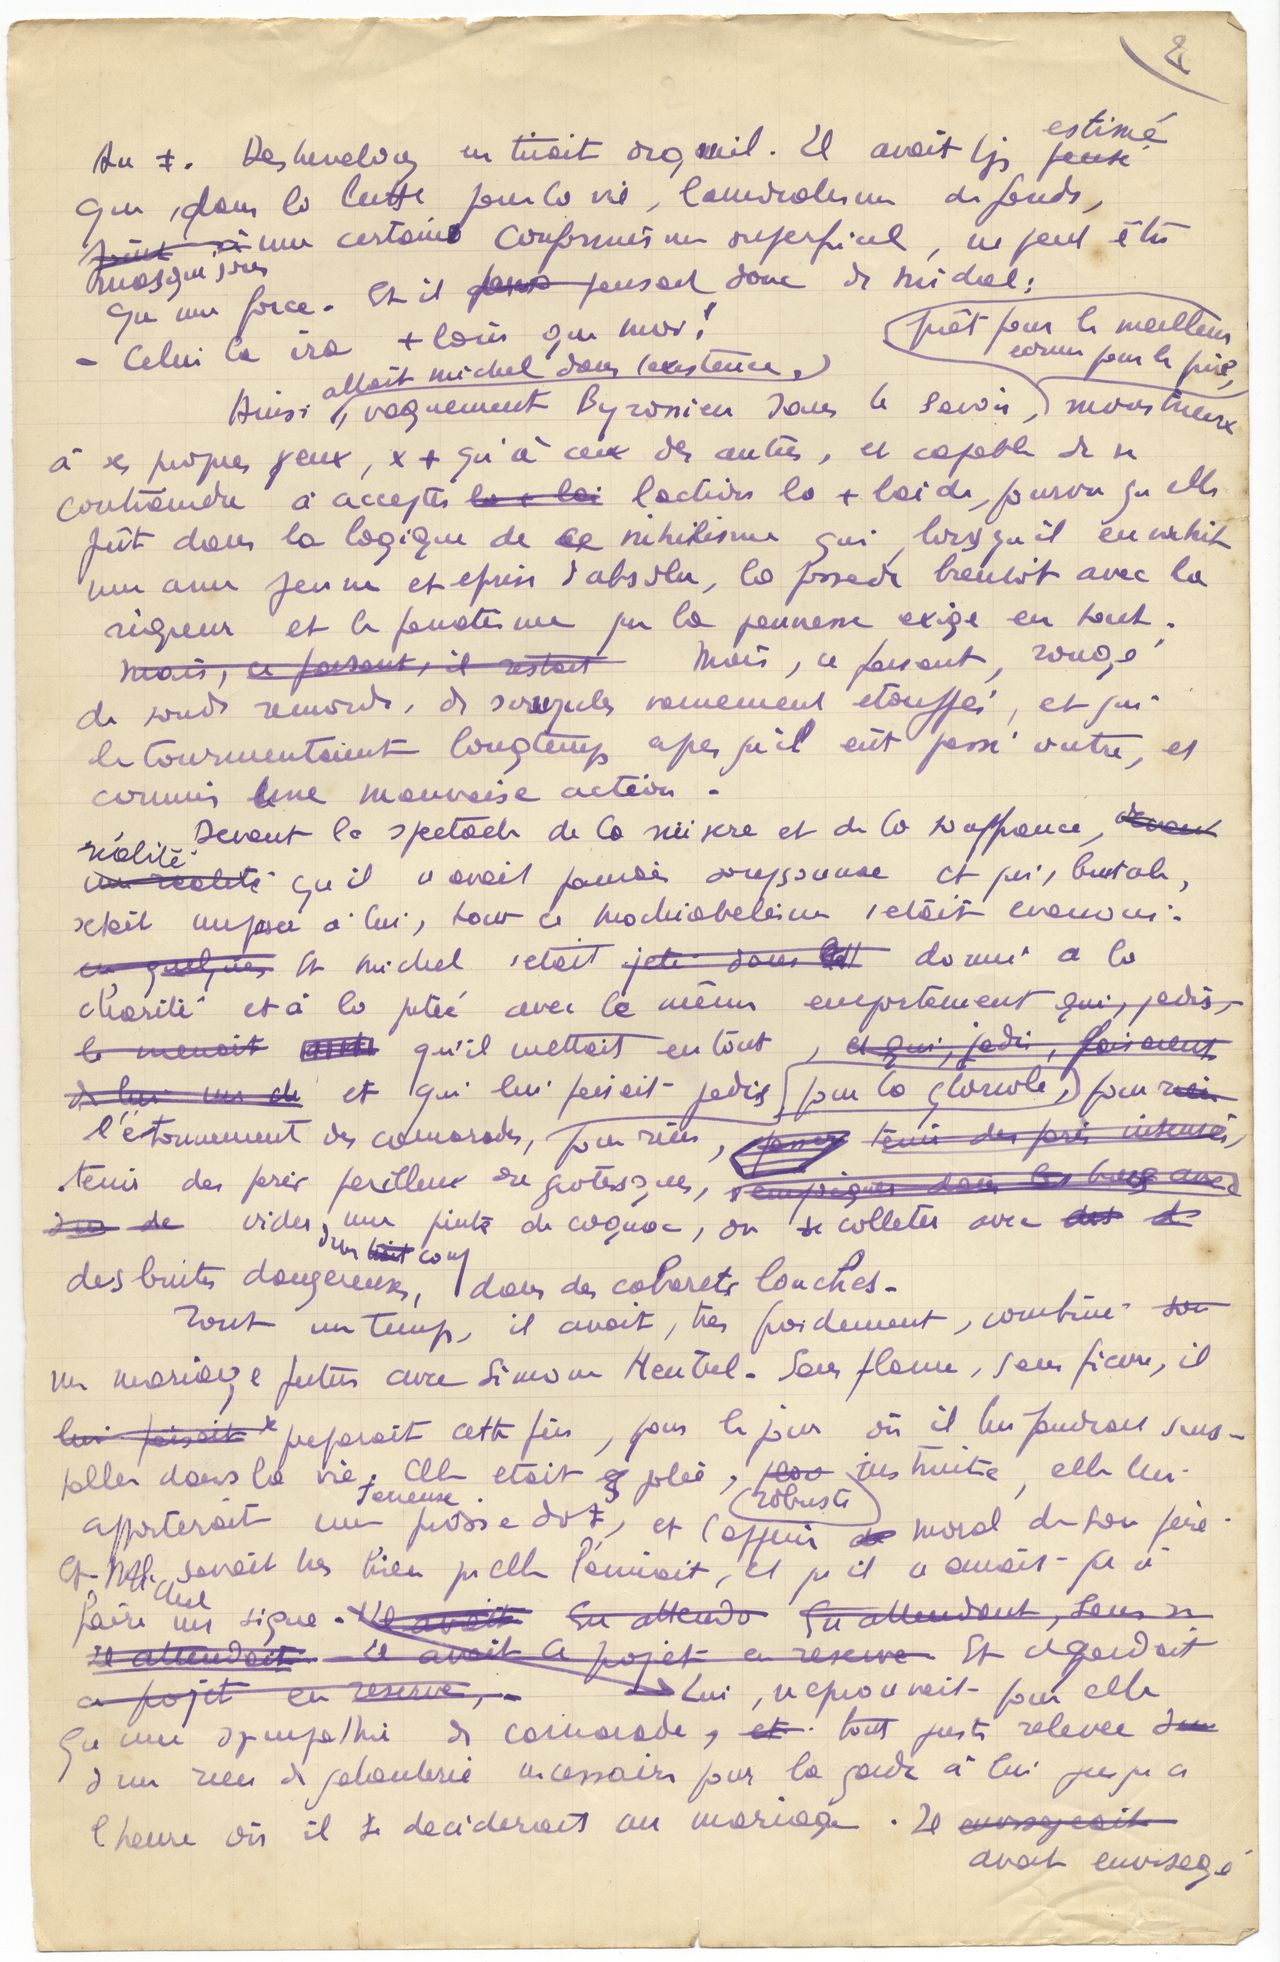 Au ‡. Deshenelong en tirait orgueil. Il avait tjs pensé estimé
que, dans la lutte pour la vie, l'amoralisme de fonds,
masqué sous une certaine conformisme superficiel, ne peut être
qu'une force. Et il pensait donc de Michel :
- Celui là ira + loin que moi !
prêt pour le meilleur
comme pour le pire,
allait Michel dans l'existence,
Ainsi, vaguement Byronien sans le savoir, monstrueux
à ses propres yeux, x + qu'à ceux des autres, et capable de se
contraindre à accepter la + lai l'action la + laide, pourvu qu'elle
fût dans la logique de ce nihilisme qui, lorsqu'il envahit
une âme jeune et éprise d'absolu, la possède bientôt avec la
rigueur et le fanatisme que la jeunesse exige en tout.
Mais, ce faisant, il restait Mais, ce faisant, rongé
de sourds remords, de scrupules vainement étouffés, et qui
le tourmentaient longtemps après qu'il eût passé outre, et
commis une mauvaise action.
Devant le spectacle de la misère et de la souffrance, devant
réalité
une réalité qu'il n'avait jamais soupçonnée et qui, brutale,
s'était imposée à lui, tout ce machiavélisme s'était évanoui.
en quelques Et Michel s'était jeté dans donné à la
charité et à la pitié avec le même emportement qui, jadis,
le menait qu'il mettait en tout, et qui, jadis, faisaient
de lui un de et qui lui faisait jadis pour la gloriole, pour rien
l'étonnement des camarades, pour rien, passer tenir des paris insensés,
tenir des paris périlleux ou grotesques, s'empoigner dans les bars avec
vider, une pinte de cognac, ou se colleter avec des
d'un trait coup
des brutes dangereuses, dans des cabarets louches.
Tout un temps, il avait, très froidement, combiné son
un mariage futur avec Simone Heutrel. Sans flamme, sans fièvre, il
lui faisait se préparait cette fin, pour le jour où il lui faudrait s'ins-
taller dans la vie. Elle était jolie, instruite, elle lui
robuste
apporterait une grosse dot, et l'appui moral de son père.
Et Michel savait très bien qu'elle l'aimait, et qu'il n'avait qu'à
faire un signe. Il avait En attenda En attendant, sans se
il attendait Il avait ce projet en réserve Et il gardait
ce projet en réserve, Lui, n'éprouvait pour elle
qu'une sympathie de camarade, et tout juste relevée d'un
d'un rien de galanterie nécessaire pour la garder à lui jusqu'à
l'heure où il se déciderait au mariage. Il envisageait
avait envisagé